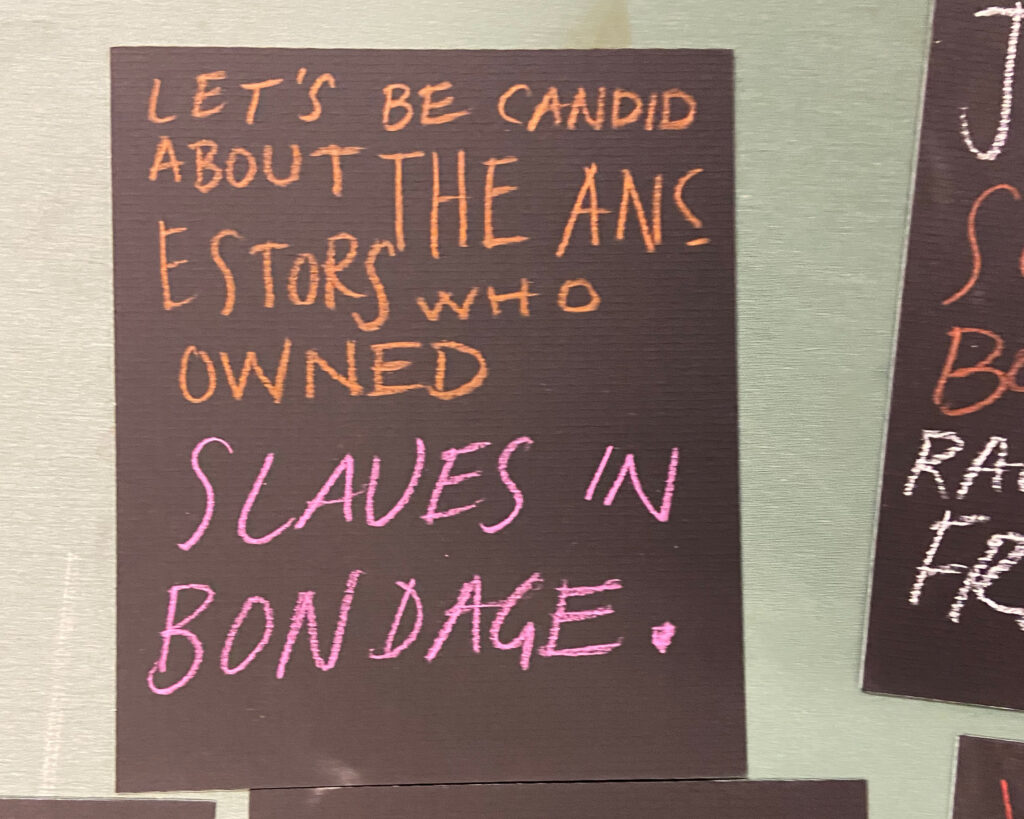 LET'S BE CANDID
ABOUT THE ANC
ESTORS WHO
OWNED
SLAVES IN
BONDAGE.
J
S
BO
RA
FR